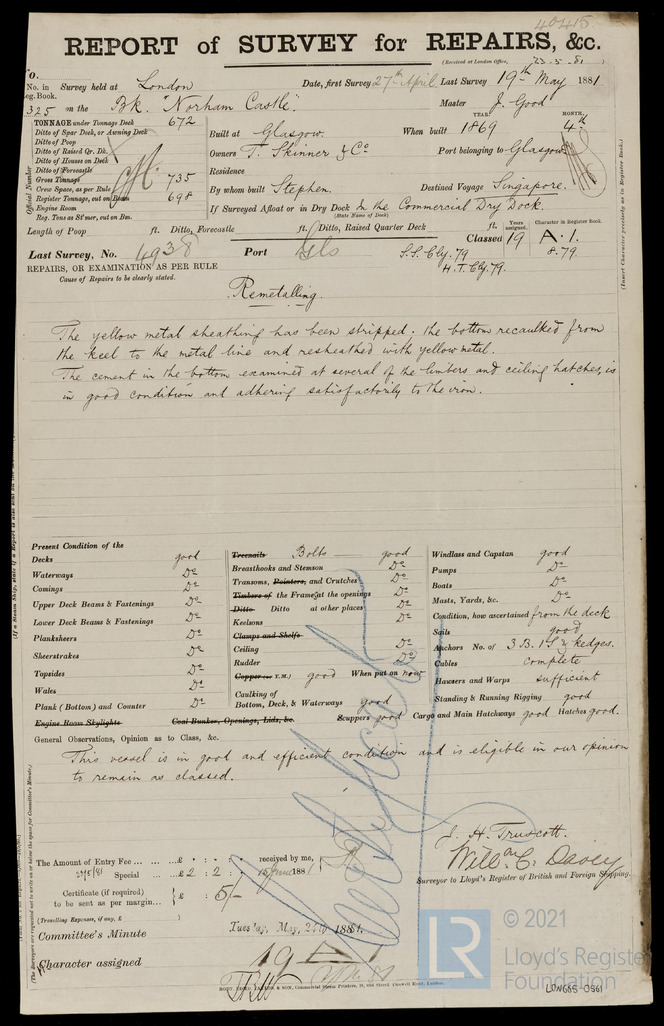 40415
REPORT of SURVEY for REPAIRS, &c.
(Received at London Office, 23-5-81)
No. in Survey held at London Date, first Survey 27th April Last Survey 19th May 1881
Reg. Book.
325 on the Bk. "Norham Castle". Master J. Good
TONNAGE under Tonnage Deck 672
Ditto of Spar Deck, or Awning Deck
Ditto of Poop
Ditto of Raised Qr. Dk.
Ditto of Houses on Deck
Ditto of Forecastle
Gross Tonnage 735
Crew Space, as per Rule
Register Tonnage, cut on Beam 698
Engine Room
Reg. Tons as St'mer, cut on Bm.
Official Number
Built at Glasgow. When built YEAR 1869 MONTH. 4th
Owners T. Skinner & Co Port belonging to Glasgow
Residence
By whom built Stephen. Destined Voyage Singapore.
If Surveyed Afloat or in Dry Dock In the Commercial Dry Dock.
(State Name of Dock)
Length of Poop ft. Ditto, Forecastle ft. Ditto, Raised Quarter Deck ft.
Years assigned. Character in Register Book.
Classed 19 A.1.
8.79
Last Survey, No. 4938 Port Gls S.S. Cly. 79
H.T. Cly. 79.
REPAIRS, OR EXAMINATION AS PER RULE
Cause of Repairs to be clearly stated.
(Insert Character precisely as in Register Book.)
Remetalling.
The yellow metal sheathing has been stripped. the bottom recaulked from
the keel to the metal line and resheathed with yellow metal.
The cement in the bottom examined at several of the limbers and ceiling hatches, is
in good condition and adhering satisfactorily to the iron.
Present Condition of the
Decks good
Waterways Do
Comings Do
Upper Deck Beams & Fastenings Do
Lower Deck Beams & Fastenings Do
Planksheers Do
Sheerstrakes Do
Topsides Do
Wales Do
Plank (Bottom) and Counter Do
Engine Room Skylights Coal Bunker, Openings, Lids, &c.
Treenails Bolts good
Breasthooks and Stemson Do
Transoms, Pointers, and Crutches Do
Timbers of the Frames at the openings Do
Ditto Ditto at other places Do
Keelsons Do
Clamps and Shelfs
Ceiling Do
Rudder Do
Copper (or Y.M.) good When put on now
Caulking of
Bottom, Deck, & Waterways good
Scuppers good Cargo and Main Hatchways good Hatches good.
Windlass and Capstan good
Pumps Do
Boats Do
Masts, Yards, &c. Do
Condition, how ascertained from the deck
Sails good
Anchors No. of 3 B. 1 S. 2 kedges.
Cables complete
Hawsers and Warps sufficient
Standing & Running Rigging good
General Observations, Opinion as to Class, &c.
This vessel is in good and efficient condition and is eligible in our opinion
to remain as classed.
J. H. Truscott.
Willam C. Davey
Surveyor to Lloyd's Register of British and Foreign Shipping.
The Amount of Entry Fee ... ... £ : : received by me,
Special ... £ 2 : 2 : 15 June 1881
Certificate (if required)
to be sent as per margin... £ : 5/-
(Travelling Expenses, if any, £ )
Committee's Minute Tuesday, May, 24th 1881.
Character assigned 19
© 2021
Lloyd's Register
Foundation
LR
LON665-0361